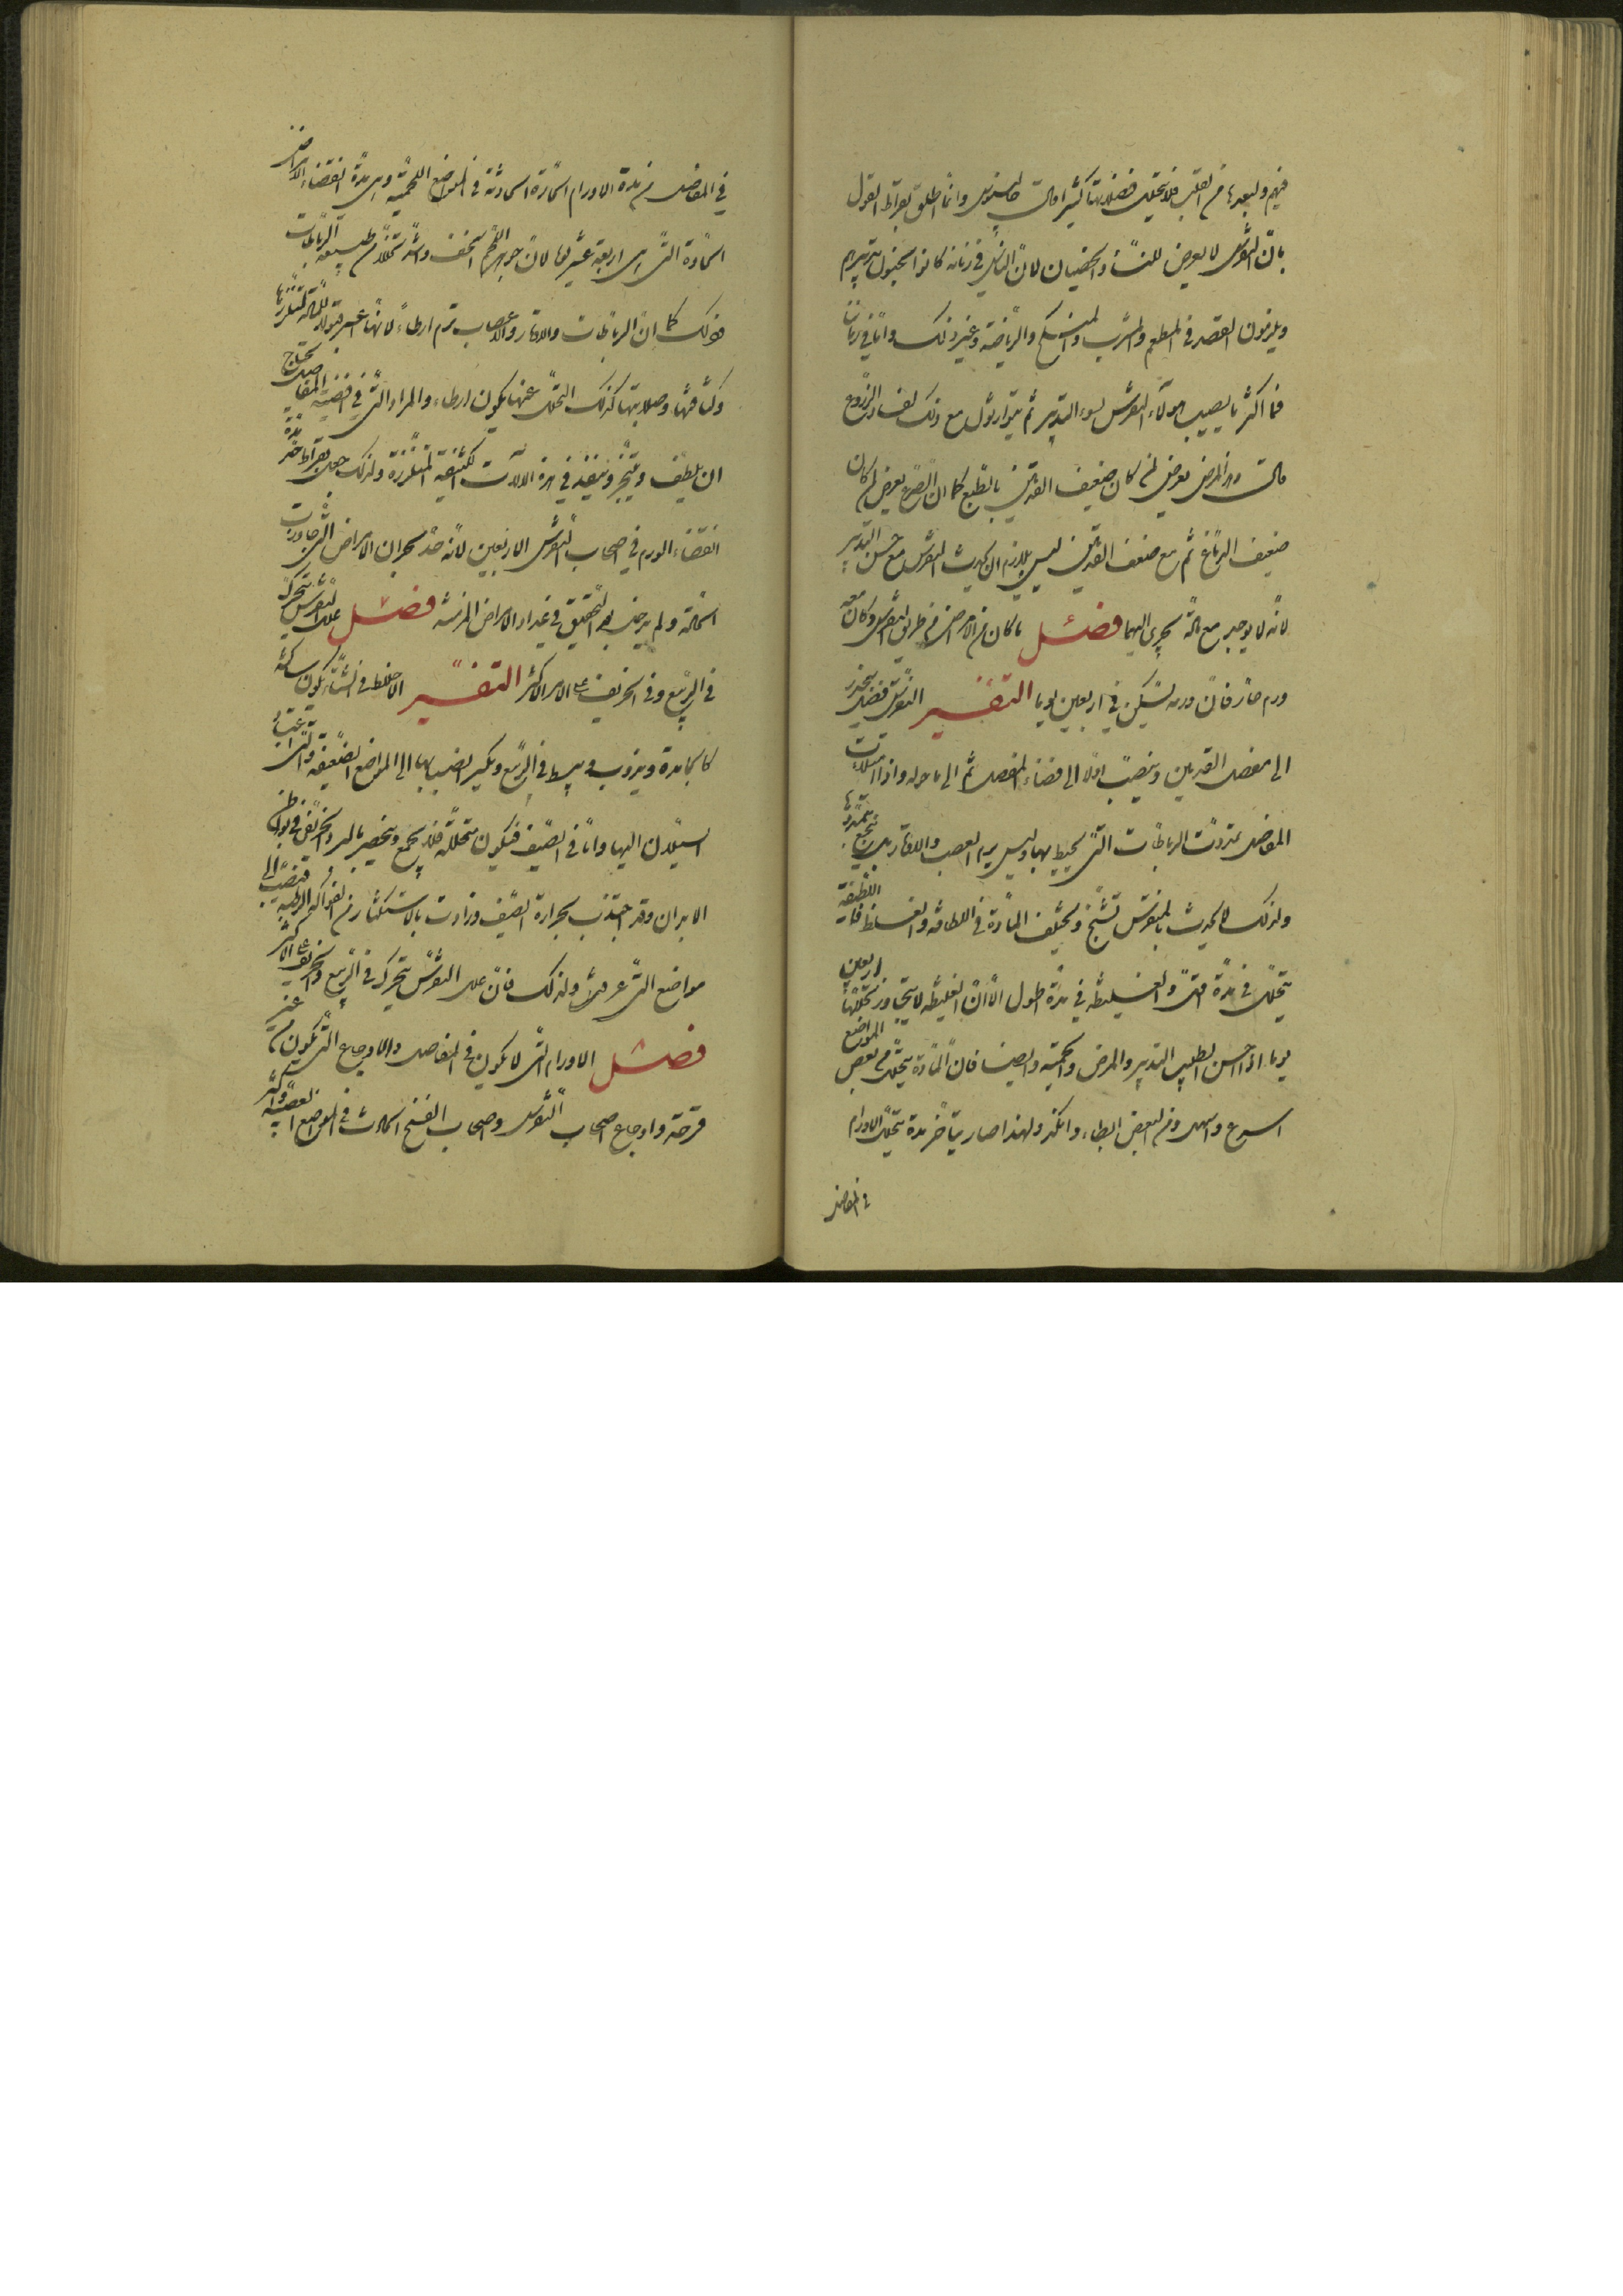 فيهم ولبعدها من القلب فلا يتحلل فضلاتها كثيرا قال جالينوس وانما اطلق بقراط القول
بان النقرس لا يعرض للنساء والخصيان لان الناس في زمانه كانوا يحسنون تدبيرهم
ويلزمون القصد في المطعم والمشرب والمنكح والرياضة وغير ذلك واما في زماننا
فما اكثر ما يصيب هؤلاء النقرس لسوء التدبير ثم يتوارثون مع ذلك لفساد الزروع
قال وهذا المرض يعرض لمن كان ضعيف القدمين بالطبع كما ان الصرع يعرض لمن كان
ضعيف الدماغ ثم مع ضعف القدمين ليس يلزم ان يحدث النقرس مع حسن التدبير
لانه لا يوجد مع مادة تجري اليهما فصل ما كان من الامراض من طريق النقرس وكان معه
ورم حار فان ورمه يسكن في اربعين يوما التفسير النقرس فضل ينحدر
الى مفصل القدمين وينصب اولا الى فضاء المفصل ثم الى ما حوله واذا امتلات
المفاصل تمددت الرباطات التي تحيط بها وليس يرم العصب والاوتار بل يتجع بتمددها
ولذلك لا يحدث بالنقرس تشنج ويختلف المادة في اللطافة والغلظ فاللطيفة
يتحلل في مدة اقل والغليظة في مدة اطول الا ان الغليظة لا يتجاوز تحللها اربعين
يوما اذا احسن الطبيب التدبير والمرض والحمية وايضا فان المادة يتحلل من بعض المواضع
اسرع واسهل ومن البعض ابطاء وانكد ولهذا صار يتأخر مدة تحلل الاورام
في المفاصل
في المفاصل من مدة الاورام الحارة الحادثة في المواضع اللحمية وهي مدة انقضاء الامراض
الحادة التي هي اربعة عشر يوما لان جوهر اللحم اسخف واشد تخلخلا من طبيعة الرباطات
فلذلك كما ان الرباطات والاوتار والاعصاب ترم ابطاء لانها اعسر قبولا للمادة لتلززها
وكثافتها وصلابتها كذلك التحلل عنها يكون ابطاء والمراد التي في افضية المفاصل يحتاج
ان يلطف ويتبخر وينفذ في هذه الالات الكثيفة المتلززة ولذلك جعل بقراط آخر مدة
انقضاء الورم في اصحاب النقرس الاربعين لانه حد بحران الامراض التي جاوزت
الحادة ولم يدخل بعد التحقيق في عداد الامراض المزمنة فصل علل النقرس يتحرك
في الربيع وفي الخريف على الامر الاكثر التفسير الاخلاط في الشتاء يكون ساكنة
كالجامدة ويذوب وينبسط في الربيع ويكثر انصبابها الى المواضع الضعيفة والتي اعتاد
السيلان اليها واما في الصيف فيكون متحللة فلا يجمع وينحصر بالبرد الخريفي في بواطن
الابدان وقد اجتذب بحرارة الصيف وزادت بالاستكثار من الفواكه الرطبة فتنصب الى
مواضع التي عرفت ولذلك فان علل النقرس يتحرك في الربيع والخريف على الاكثر
فصل الاورام التي لا يكون في المفاصل والاوجاع التي تكون من غير
قرحة واوجاع اصحاب النقرس واصحاب الفسخ الحادث في المواضع العصبية واكثر